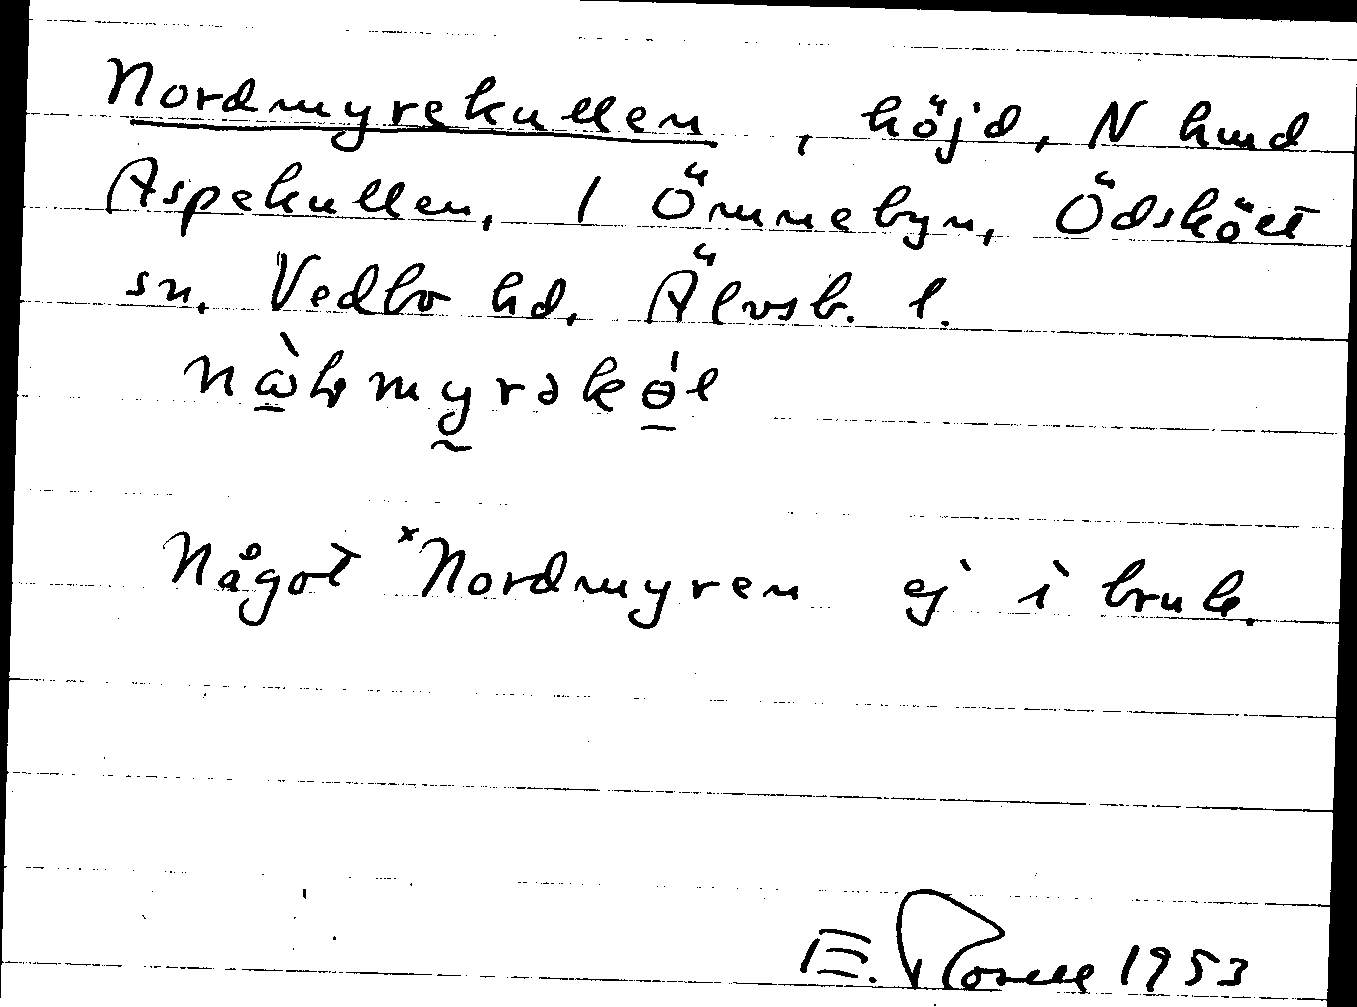 Nordmyrekullen, höjd, N hmd
Aspekullen, 1 Ömmebyn, Ödsköelt
sn. Vedbo hd. Älvsb. l.
Något *Nordmyren ej i bruk.
E. Rosell 1953